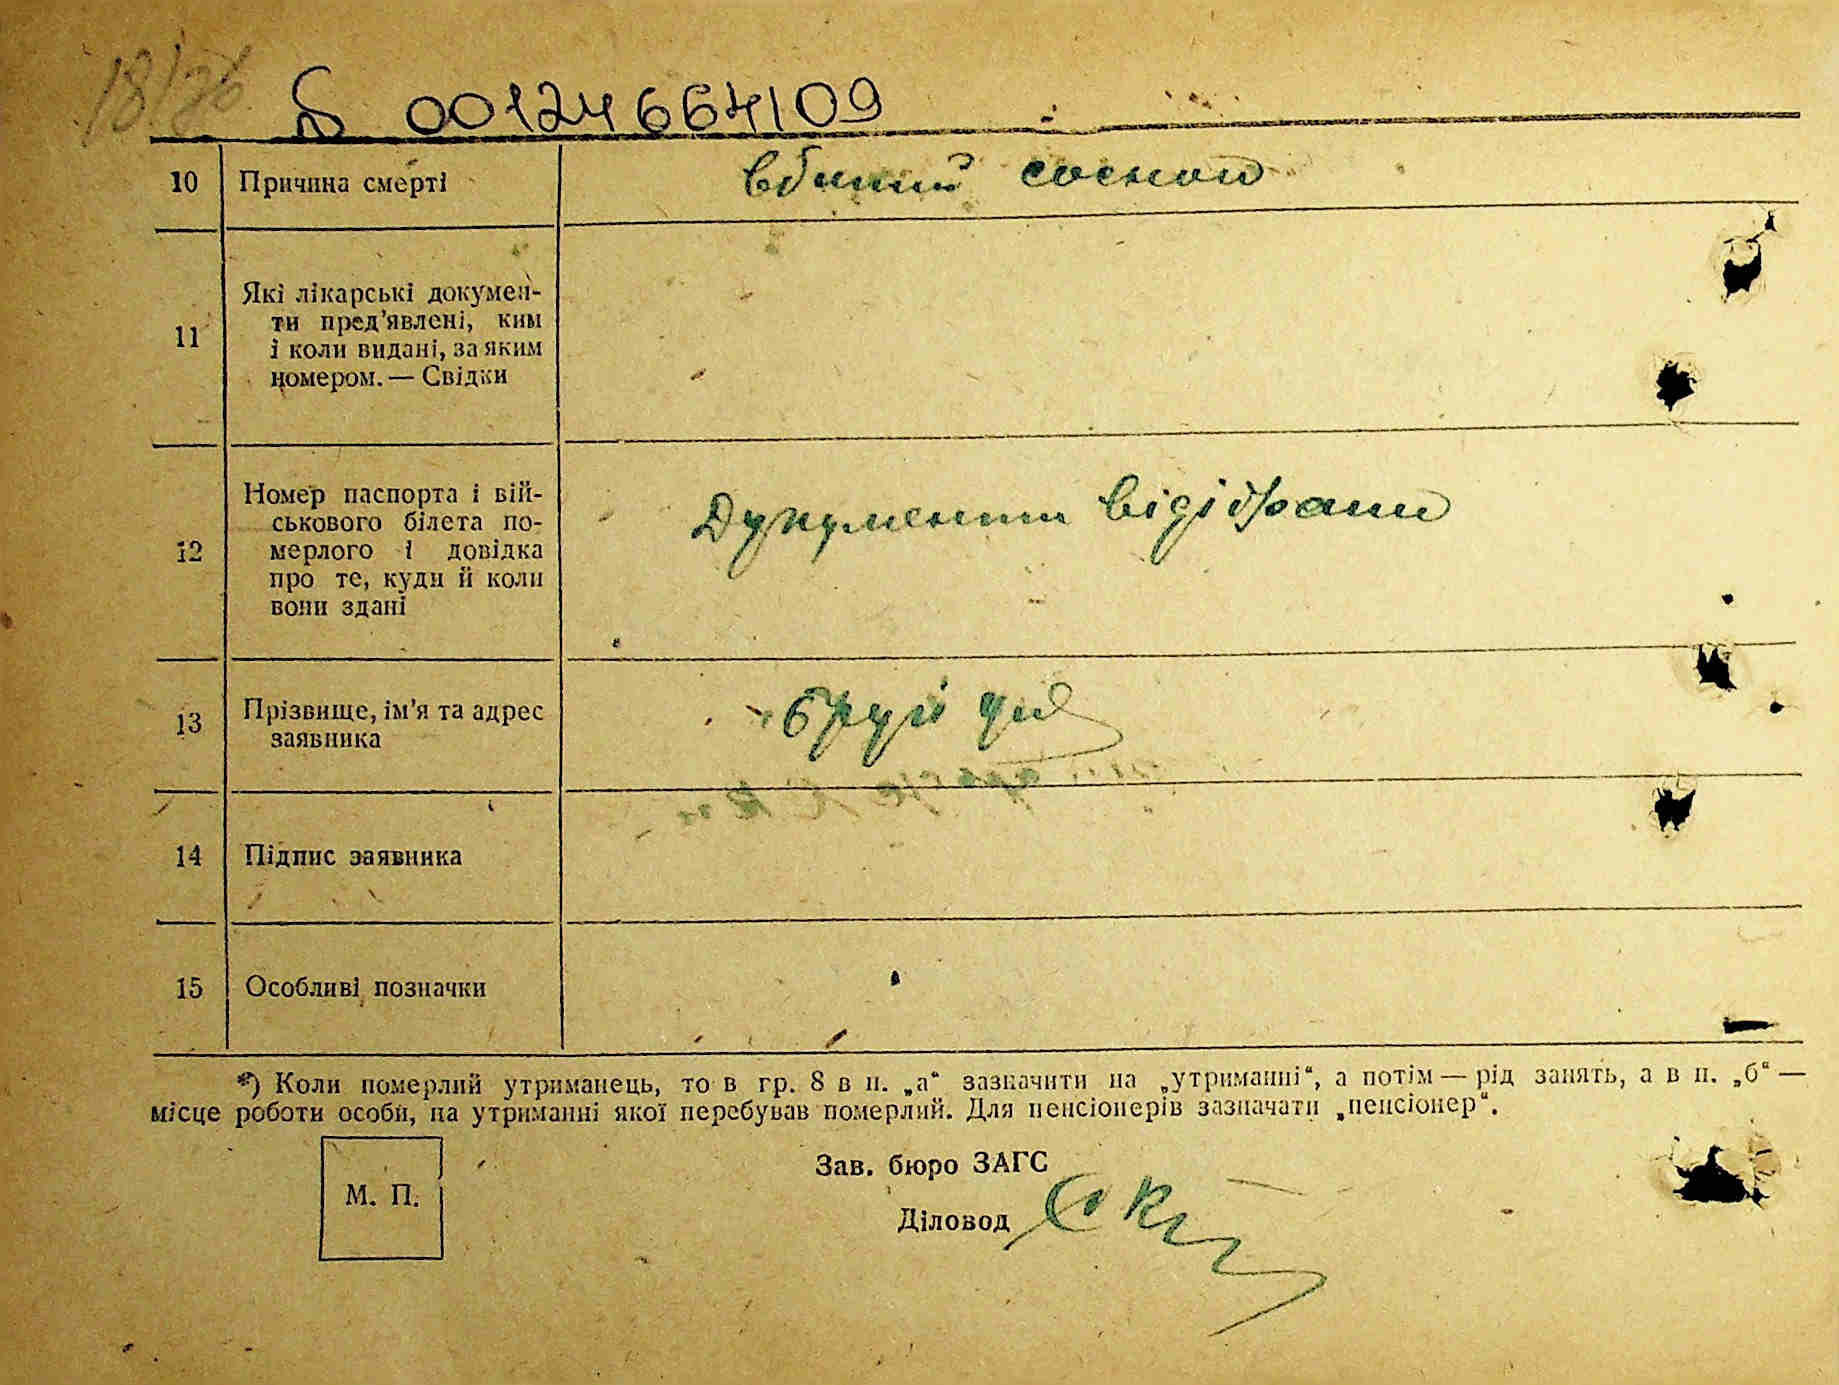 18/26
00124664109
10 Причина смерті вбитий сосною
11 Які лікарські документи пред'явлені, ким
і коли видані, за яким
номером. — Свідки
12 Номер паспорта і вій-
ськового білета по-
мерлого і довідка
про те, куди й коли
вони здані
Дукументи відібрани
13 Прізвище, ім'я та адрес
заявника
Бруй
14 Підпис заявника
15 Особливі позначки
*) Коли померлий утриманець, то в гр. 8 в п. „а“ зазначити на „утриманні“, а потім — рід занять, а в п. „б“ —
місце роботи особи, на утриманні якої перебував померлий. Для пенсіонерів зазначати „пенсіонер“.
Зав. бюро ЗАГС
М. П.
Діловод